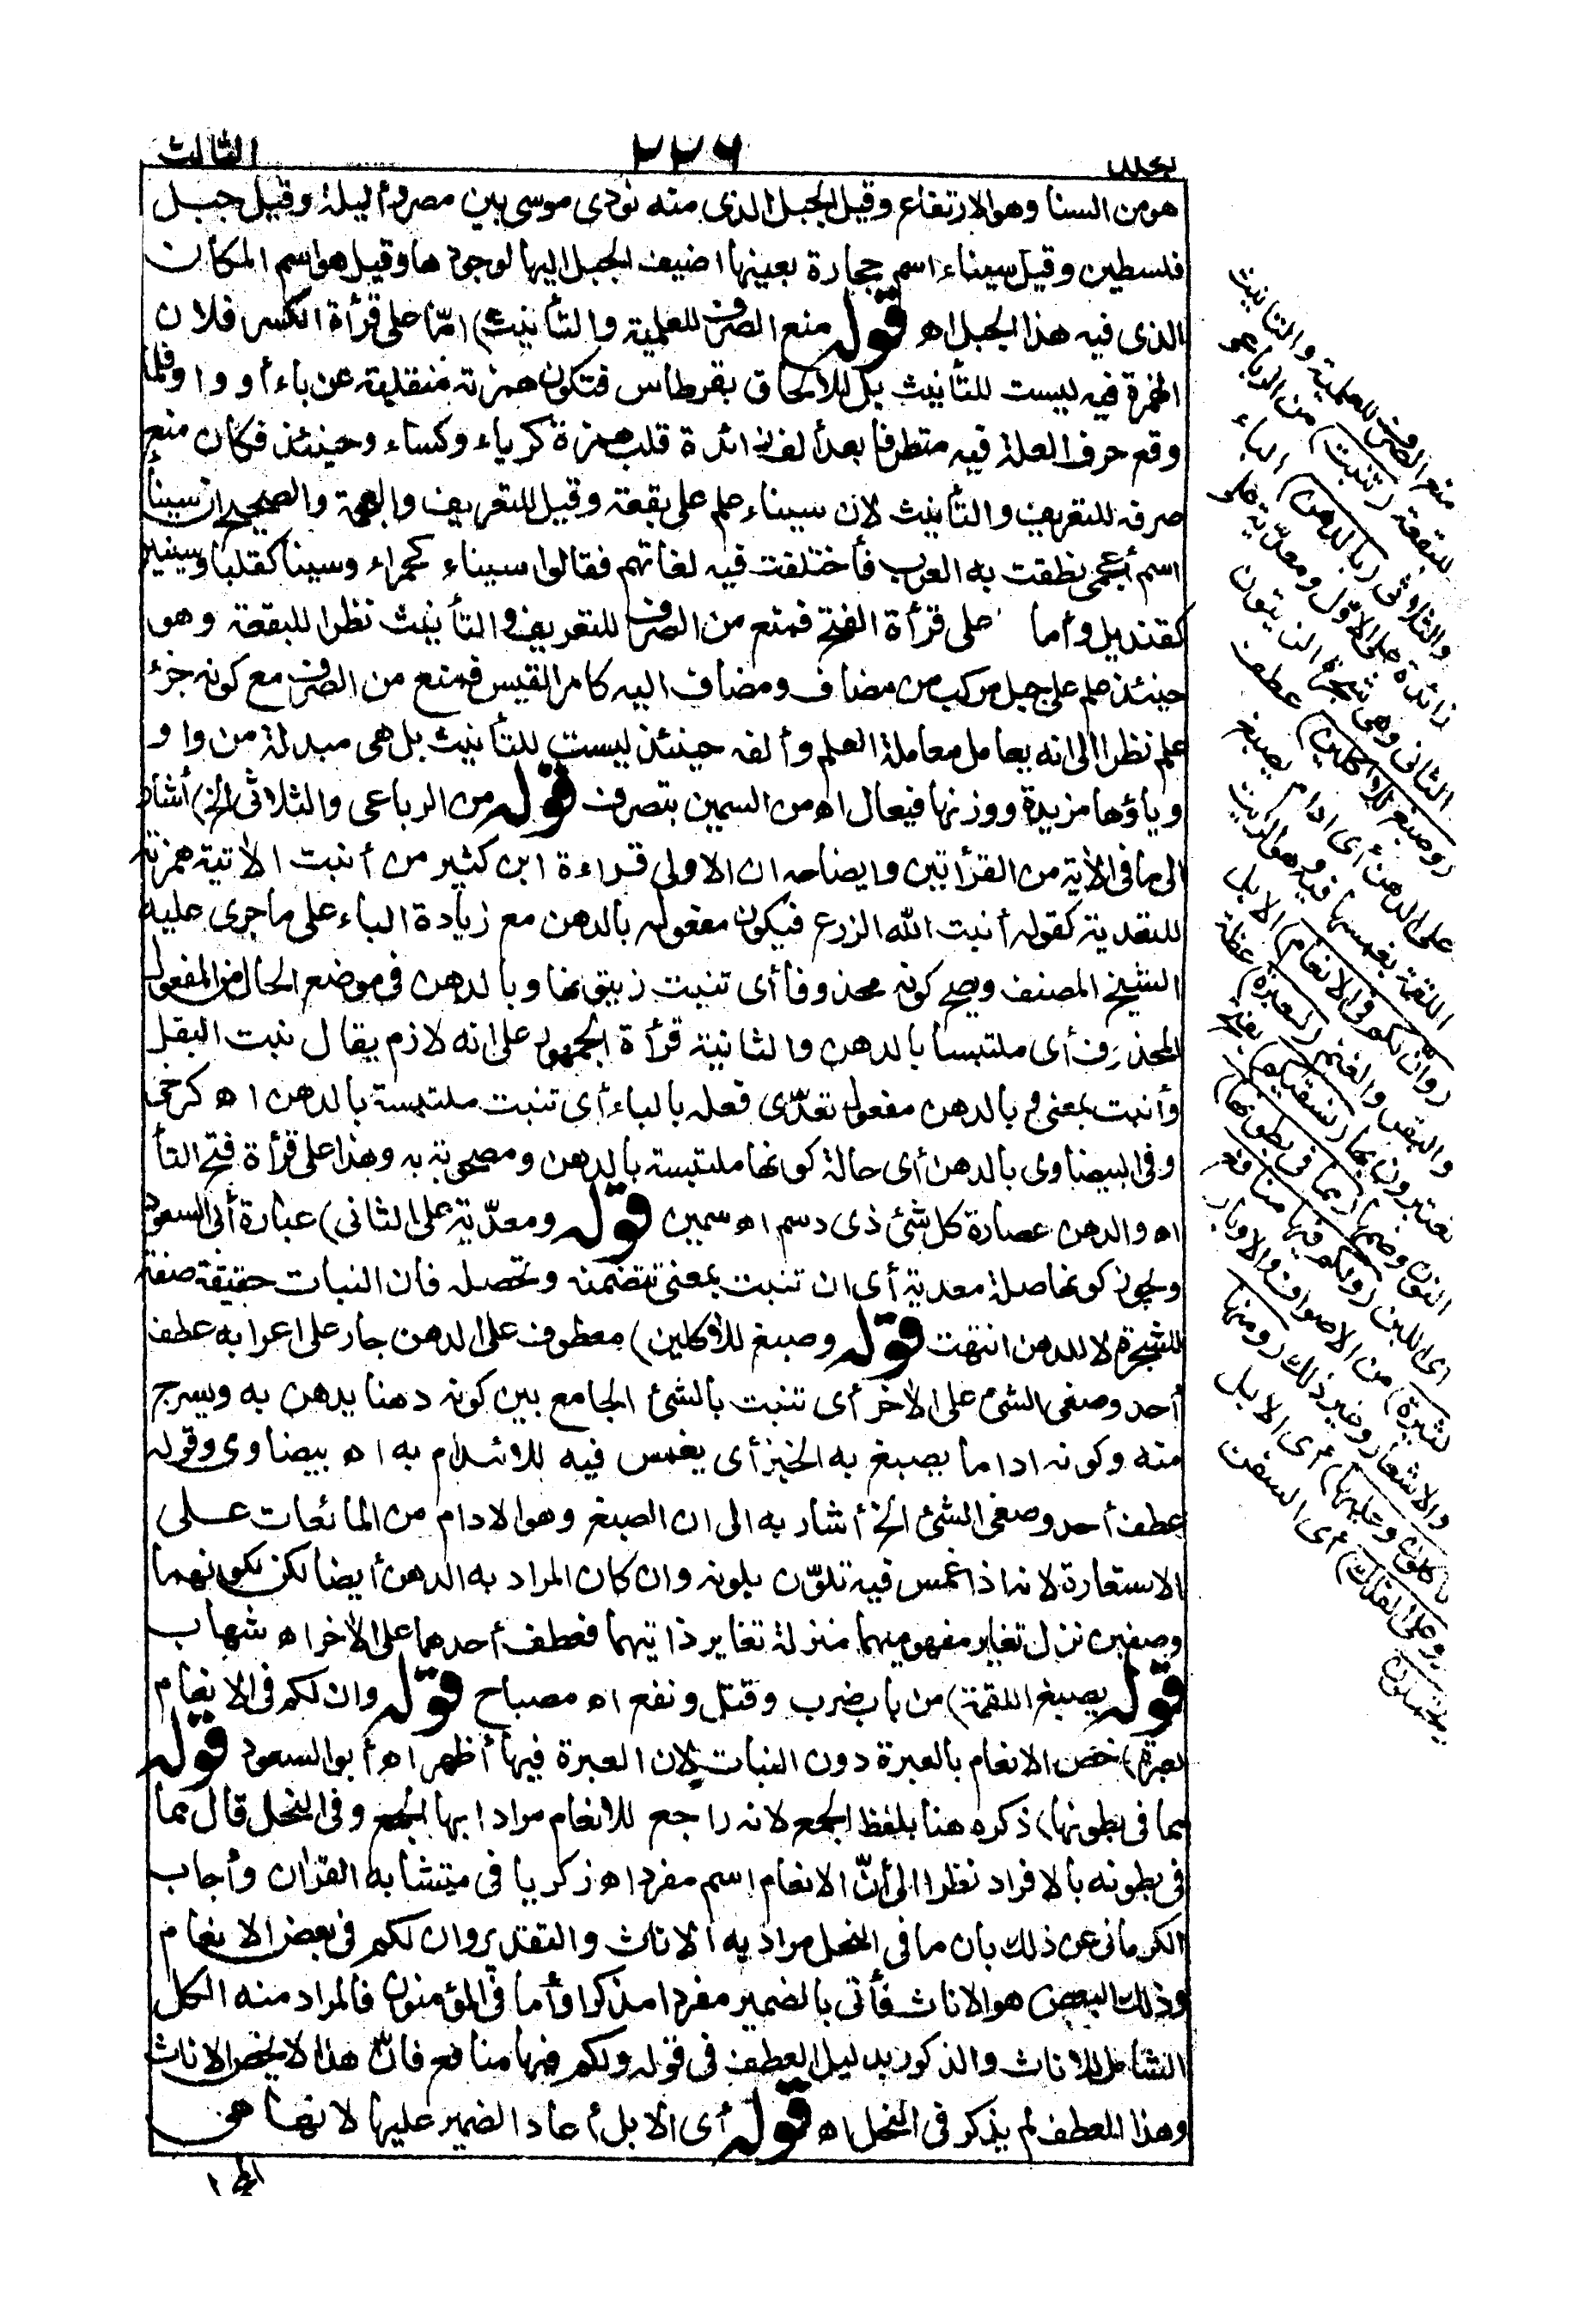 الثالث ٢٢٦
هو من السنا وهو الارتفاع وقيل الجبل الذى منه نودى موسى بين مصر وأيلة وقيل جبل
فلسطين وقيل سيناء اسم حجارة بعينها اضيف الجبل اليها لوجودها وقيل هو اسم المكان
الذى فيه هذا الجبل اه قوله منع الصرف للعلمية والتأنيث) امّا على قرأة الكسر فلان
الهمزة فيه ليست للتأنيث بل للالحاق بقرطاس فتكون همزته منقلبة عن ياء أو واو فلما
وقع حرف العلة فيه متطرفا بعد ألف زائدة قلب همزة كرياء وكساء وحينئذ فكان منع
صرفه للتعريف والتأنيث لان سيناء علم على بقعة وقيل للتعريف والعجمة والصحيح ان سيناء
اسم أعجمى نطقت به العرب فأختلفت فيه لغاتهم فقالوا سيناء كحمراء وسينا كعلبا وسينين
كقنديل وأما على قرأة الفتح فمنع من الصرف للتعريف والتأنيث نظرا للبقعة وهو
حينئذ علم على جبل مركب من مضاف ومضاف اليه كامرالقيس فمنع من الصرف مع كونه جزء
علم نظرا الى انه يعامل معاملة العلم وألفه حينئذ ليست للتأنيث بل هى مبدلة من واو
وياؤها مزيدة ووزنها فيعال اه من السمين بتصرف قوله من الرباعى والثلاثى الخ) أشار
الى ما فى الأية من القرأتين وايضاحه ان الاولى قراءة ابن كثير من أنبت الأتية همزته
للتعدية كقوله أنبت الله الزرع فيكون مفعوله بالدهن مع زيادة الباء على ما جرى عليه
الشيخ المصنف وصح كونه محذوفا أى تنبت زيتونها وبالدهن فى موضع الحال من المفعول
المحذوف أى ملتبسا بالدهن والثانية قرأة الجمهور على انه لازم يقال نبت البقل
وأنبت بمعنى وبالدهن مفعول تعدّى فعله بالباء أى تنبت ملتبسة بالدهن اه كرخى
وفى البيضاوى بالدهن أى حالة كونها ملتبسة بالدهن ومصحوبة به وهذا على قرأة فتح التأ
اه والدهن عصارة كل شئ ذى دسم اه سمين قوله ومعدّية على الثانى) عبارة أبى السعود
ويجوز كونها صلة معدية أى ان تنبت بمعنى تتضمنه وتحصله فان النبات حقيقة صفة
للشجرة لا للدهن انتهت قوله وصبغ للأكلين) معطوف على الدهن جار على اعرابه عطف
أحد وصفى الشئ على الأخر أى تنبت بالشئ الجامع بين كونه دهنا يدهن به ويسرج
منه وكونه اداما يصبغ به الخبز أى يغمس فيه للائتدام به اه بيضاوى وقوله
عطف أحد وصفى الشئ الخ أشار به الى ان الصبغ وهو الادام من المائعات على
الاستعارة لانه اذا غمس فيه تلوّن بلونه وان كان المراد به الدهن أيضا لكن لكونهما
وصفين نزل تغاير مفهوميهما منزلة تغاير ذاتيهما فعطف أحدهما على الأخر اه شهاب
قوله يصبغ اللقمة) من باب ضرب وقتل ونفع اه مصباح قوله وان لكم فى الانعام
لعبرة) خص الانعام بالعبرة دون النبات لان العبرة فيها أظهر اه أبو السعود قوله
مما فى بطونها) ذكره هنا بلفظ الجمع لانه راجع للانعام مرادا بها الجمع وفى النحل قال مما
فى بطونه بالافراد نظرا الى أنّ الانعام اسم مفرد اه زكريا فى متشابه القرأن وأجاب
الكرمانى عن ذلك بان ما فى النحل مراد به الاناث والتقدير وان لكم فى بعض الانعام
وذلك البعض هو الاناث فأتى بالضمير مفردا مذكرا وأما فى المؤمنون فالمراد منه الكل
الشامل للاناث والذكور بدليل العطف فى قوله ولكم فيها منافع فانّ هذا لا يخص الاناث
وهذا العطف لم يذكر فى النحل اه قوله أى الابل أعاد الضمير عليها لانها هى
منع الصرف للعلمية والتأنيث
للبقعة (تنبت) من الرباعى
والثلاثى (بالدهن) الباء
زائدة على الاوّل ومعدّية على
الثانى وهى شجرة الزيتون
(وصبغ للأكلين) عطف
على الدهن أى ادام يصبغ
اللقمة بغمسها فيه وهو الزيت
(وانّ لكم فى الانعام) الابل
والبقر والغنم (لعبرة) عظة
تعتبرون بها (نسقيكم) بفتح
النون وضمها (مما فى بطونها)
أى اللبن (ولكم فيها منافع
كثيرة) من الاصواف والاوبار
والاشعار وغير ذلك (ومنها
تأكلون وعليها) أى الابل
(وعلى الفلك) أى السفن